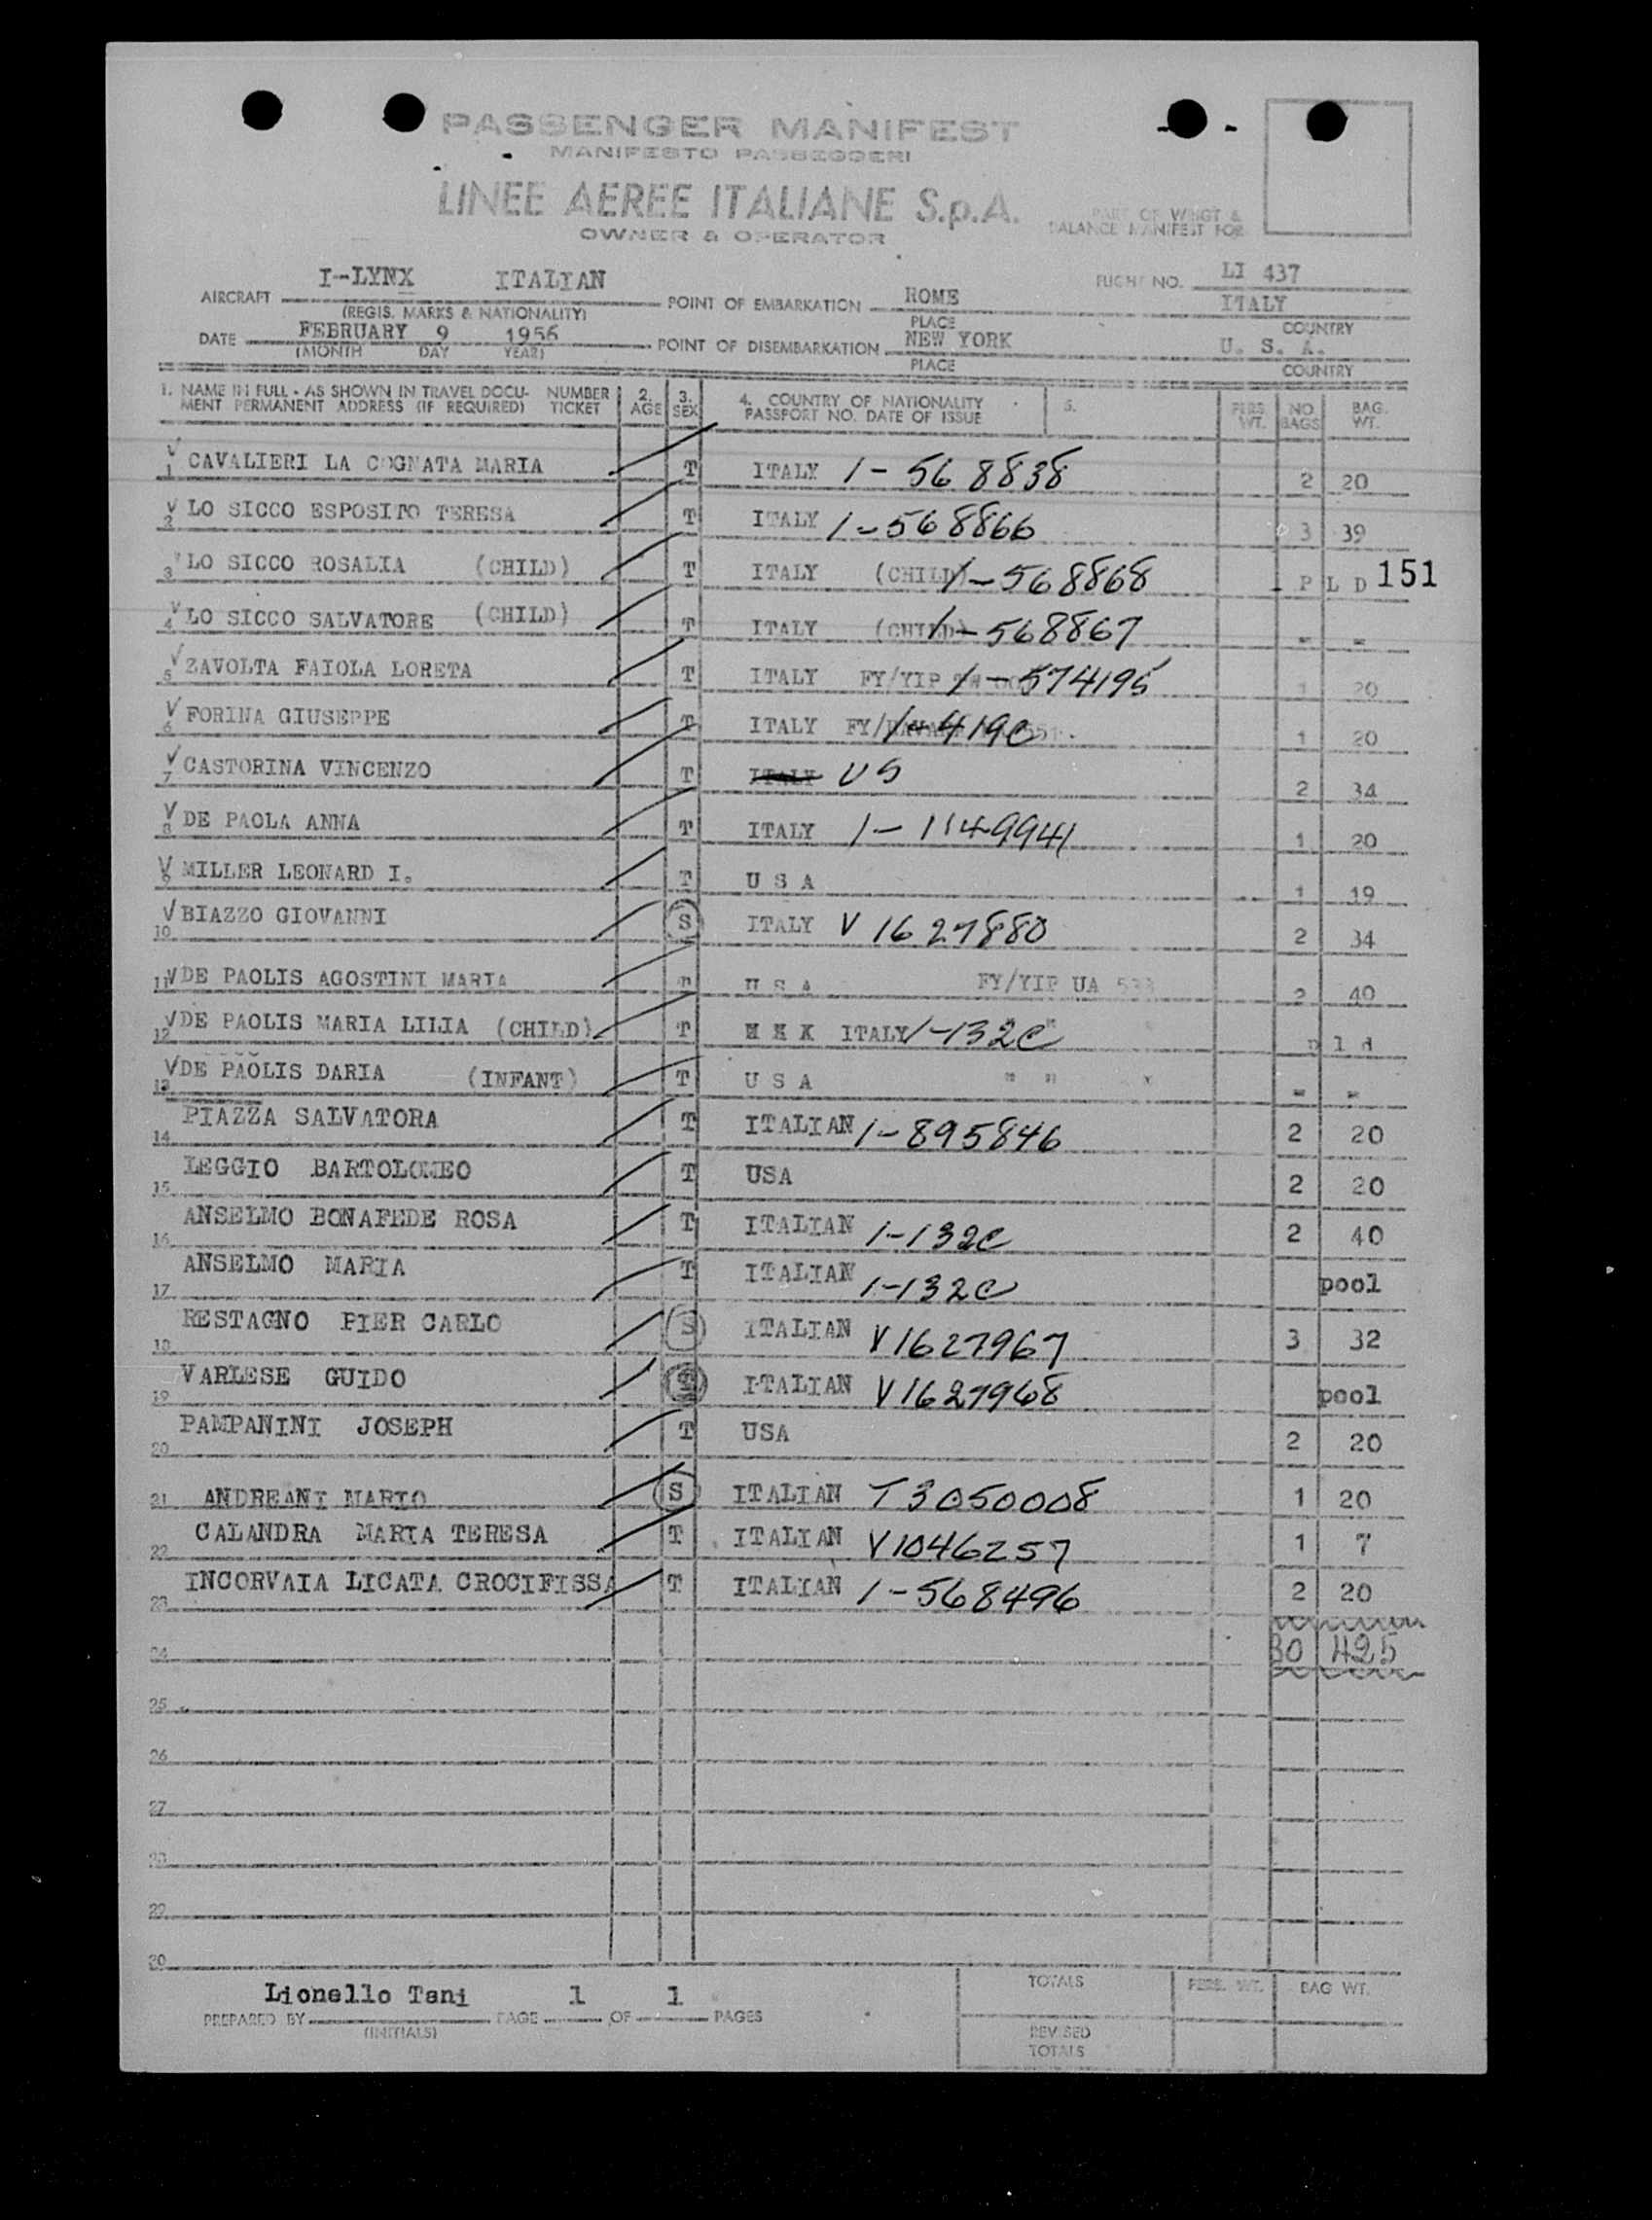 PASSENGER MANIFEST
MANIFESTO PASSEGGERI
LINEE AEREE ITALIANE S.p.A.
OWNER & OPERATOR
PART OF WHGT &
BALANCE MANIFEST FOR
AIRCRAFT I-LYNX ITALIAN
(REGIS. MARKS & NATIONALITY)
POINT OF EMBARKATION ROME
PLACE
FLIGHT NO. LI 437
ITALY
COUNTRY
DATE FEBRUARY 9 1956
(MONTH DAY YEAR)
POINT OF DISEMBARKATION NEW YORK
PLACE
U. S. A.
COUNTRY
1. NAME IN FULL - AS SHOWN IN TRAVEL DOCU- NUMBER 2. 3. 4. COUNTRY OF NATIONALITY 5. PERS. NO. BAG.
MENT PERMANENT ADDRESS (IF REQUIRED) TICKET AGE SEX PASSPORT NO. DATE OF ISSUE WT. BAGS WT.
1 CAVALIERI LA COGNATA MARIA T ITALY 1-568838 2 20
2 LO SICCO ESPOSITO TERESA T ITALY 1-568866 3 39
3 LO SICCO ROSALIA (CHILD) T ITALY (CHILD) 1-568868 P L D 151
4 LO SICCO SALVATORE (CHILD) T ITALY (CHILD) 1-568867 - -
5 ZAVOLTA FAIOLA LORETA T ITALY FY/YIP 1-574195 1 20
6 FORINA GIUSEPPE T ITALY FY/ 1-419C 1 20
7 CASTORINA VINCENZO T ITALY US 2 34
8 DE PAOLA ANNA T ITALY 1-1149941 1 20
9 MILLER LEONARD I. T U S A 1 19
10 BIAZZO GIOVANNI S ITALY V 1627880 2 34
11 DE PAOLIS AGOSTINI MARIA T U S A FY/YIP UA 2 40
12 DE PAOLIS MARIA LILIA (CHILD) T ITALY 1-132C " p l d
13 DE PAOLIS DARIA (INFANT) T U S A " " " - -
14 PIAZZA SALVATORA T ITALIAN 1-895846 2 20
15 LEGGIO BARTOLOMEO T USA 2 20
16 ANSELMO BONAFEDE ROSA T ITALIAN 1-132C 2 40
17 ANSELMO MARIA T ITALIAN 1-132C pool
18 RESTAGNO PIER CARLO S ITALIAN V1627967 3 32
19 VARLESE GUIDO S ITALIAN V1627968 pool
20 PAMPANINI JOSEPH T USA 2 20
21 ANDREANI MARIO S ITALIAN T3050008 1 20
22 CALANDRA MARIA TERESA T ITALIAN V1046257 1 7
23 INCORVAIA LICATA CROCIFISSA T ITALIAN 1-568496 2 20
24 30 425
25
26
27
28
29
30
PREPARED BY Lionello Tani PAGE 1 OF 1 PAGES
(INITIALS)
TOTALS PERS. WT. BAG WT.
REVISED
TOTALS